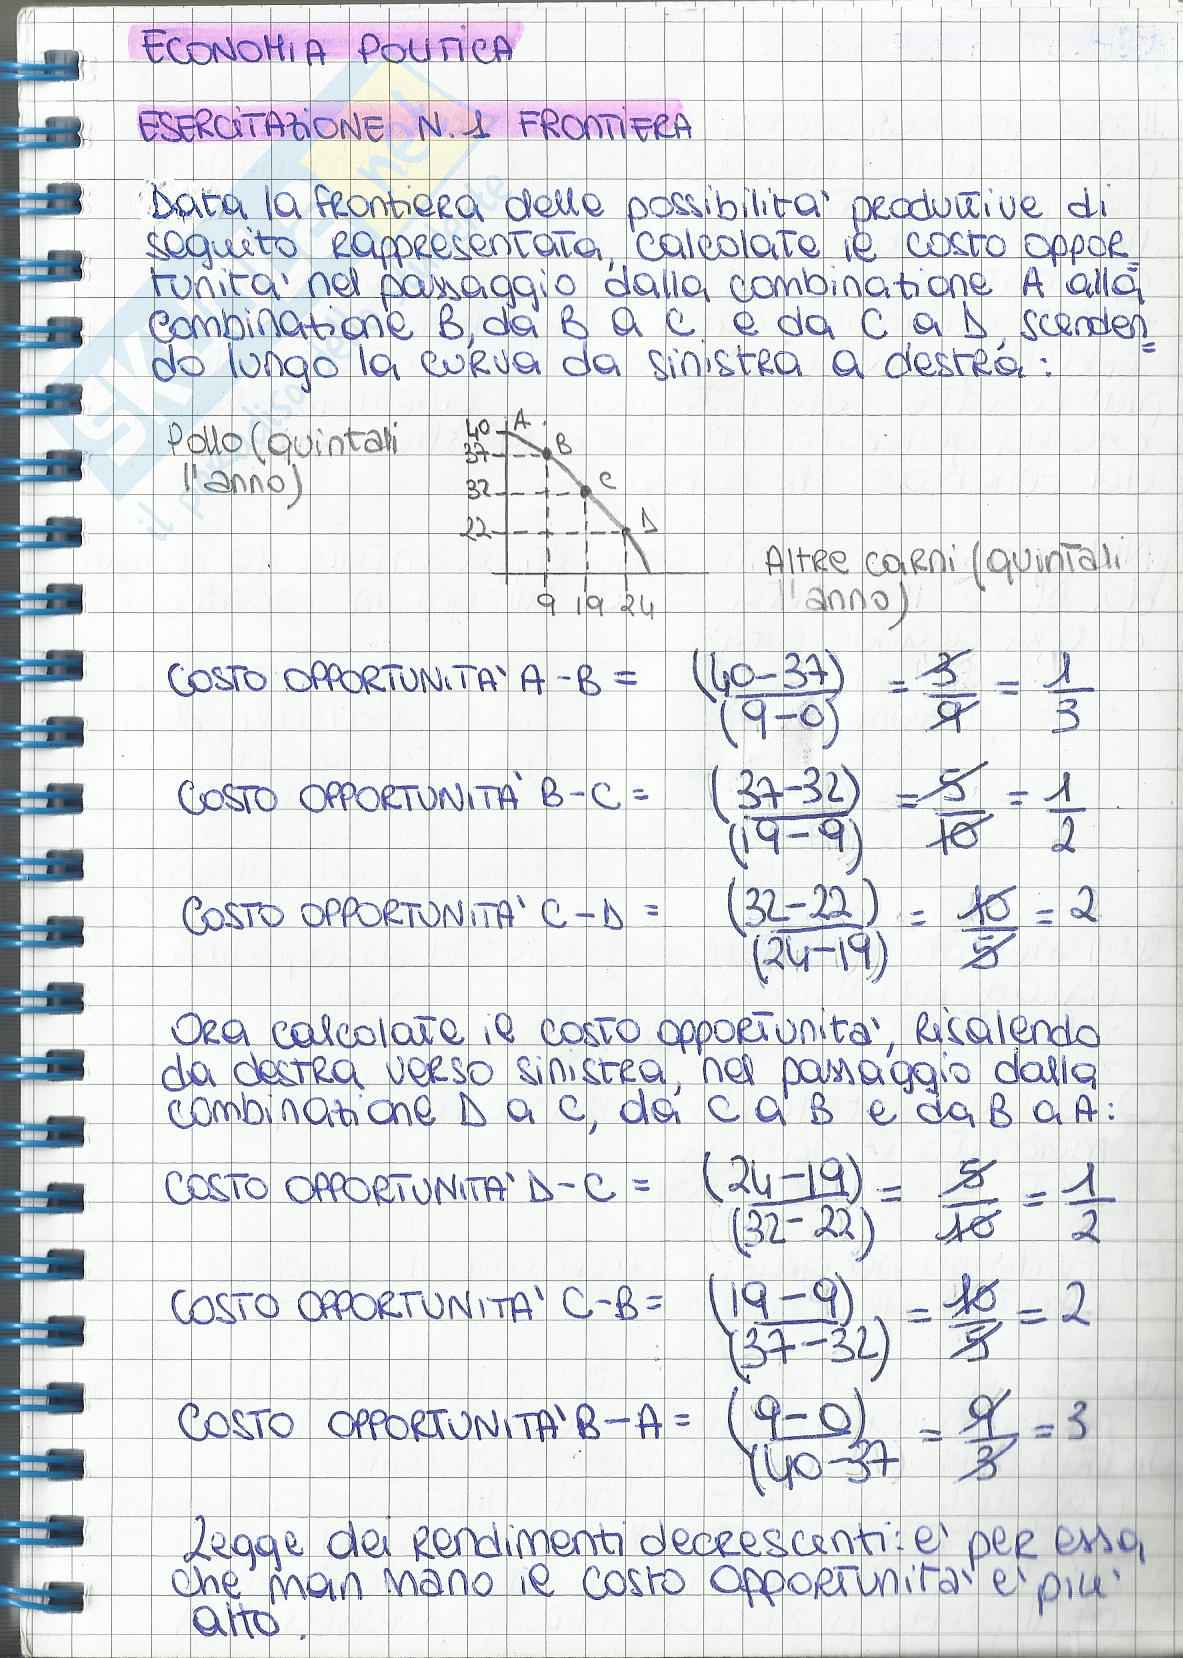 ECONOMIA POLITICA
ESERCITAZIONE N.1 FRONTIERA
Data la frontiera delle possibilità produttive di
seguito rappresentata, calcolate il costo oppor=
tunità nel passaggio dalla combinazione A alla
combinazione B, da B a C e da C a D, scenden=
do lungo la curva da sinistra a destra:
Pollo (quintali
l'anno)
40 A
37 B
32 C
22 D
9 19 24
Altre carni (quintali
l'anno)
COSTO OPPORTUNITA' A-B = (40-37)/(9-0) = 3/9 = 1/3
COSTO OPPORTUNITA' B-C = (37-32)/(19-9) = 5/10 = 1/2
COSTO OPPORTUNITA' C-D = (32-22)/(24-19) = 10/5 = 2
Ora calcolate il costo opportunità, risalendo
da destra verso sinistra, nel passaggio dalla
combinazione D a C, da C a B e da B a A:
COSTO OPPORTUNITA' D-C = (24-19)/(32-22) = 5/10 = 1/2
COSTO OPPORTUNITA' C-B = (19-9)/(37-32) = 10/5 = 2
COSTO OPPORTUNITA' B-A = (9-0)/(40-37 = 9/3 = 3
Legge dei rendimenti decrescenti: è per essa
che man mano il costo opportunità è più
alto.